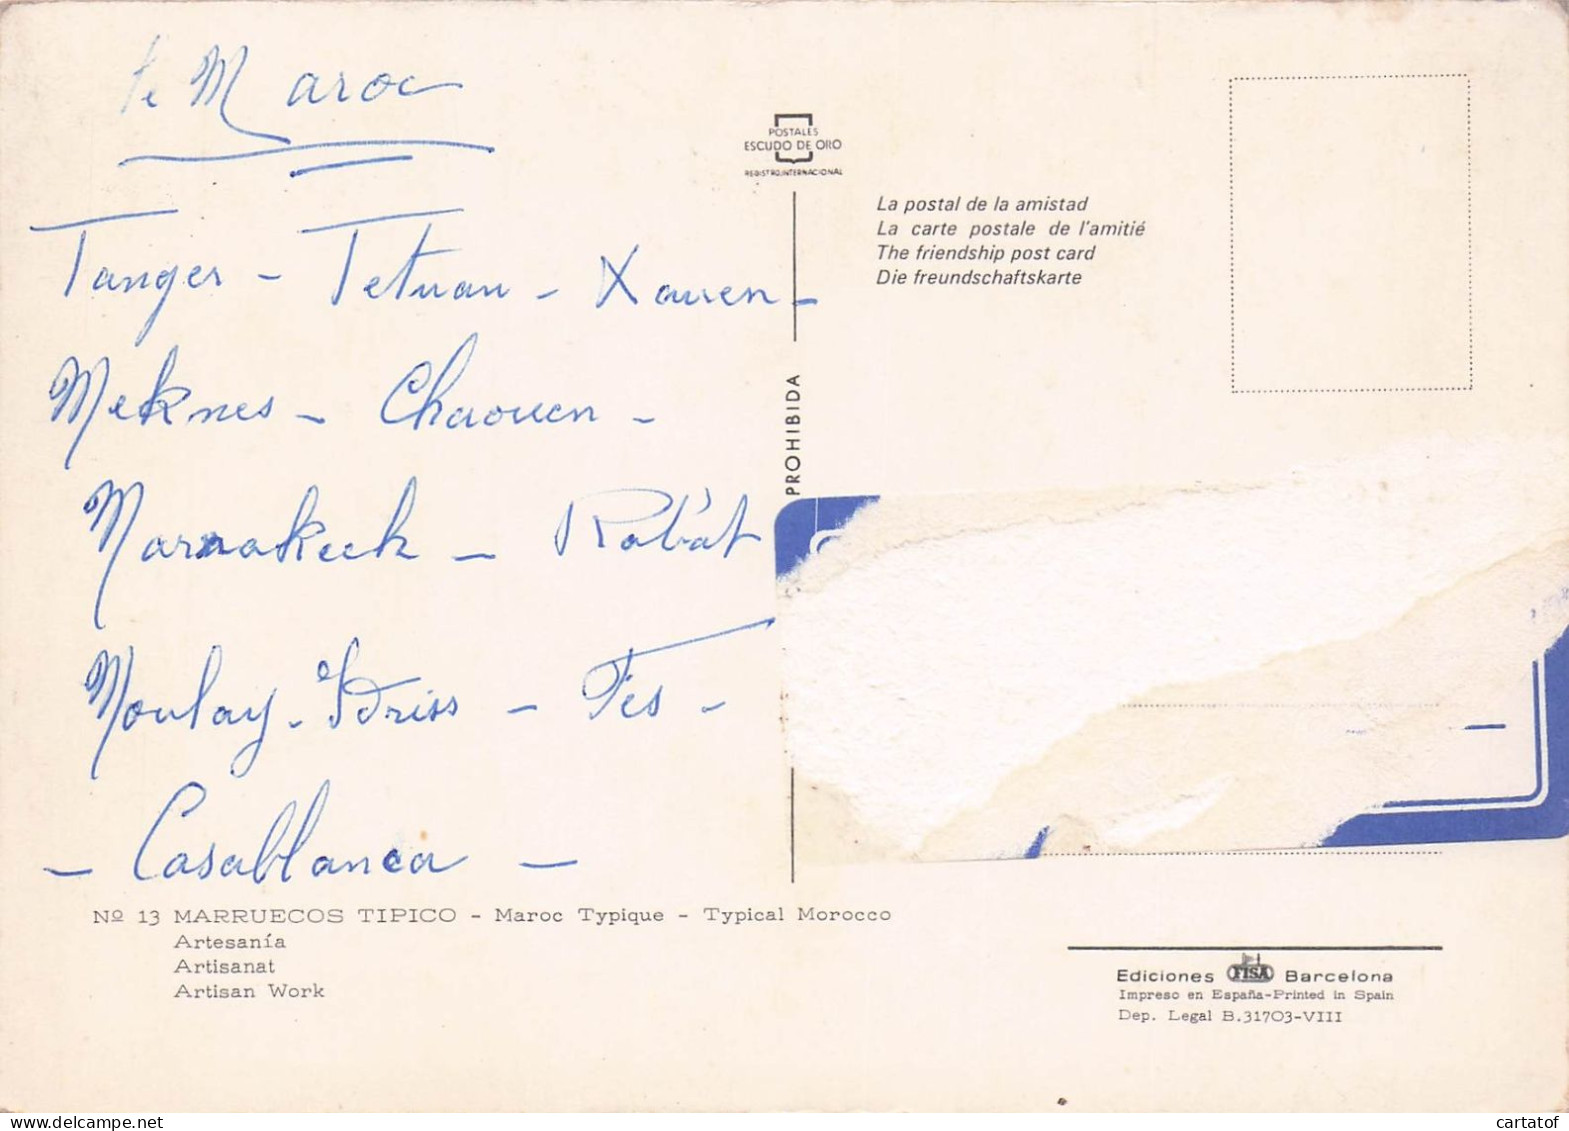 Le Maroc
Tanger - Tetuan - Xauen -
Meknes - Chaouen -
Marrakech - Rabat
Moulay-Idriss - Fes -
- Casablanca -
Nº 13 MARRUECOS TIPICO - Maroc Typique - Typical Morocco
Artesanía
Artisanat
Artisan Work
POSTALES
ESCUDO DE ORO
REGISTRO INTERNACIONAL
PROHIBIDA
La postal de la amistad
La carte postale de l'amitié
The friendship post card
Die freundschaftskarte
Ediciones FISA Barcelona
Impreso en España-Printed in Spain
Dep. Legal B.31703-VIII
cartatof